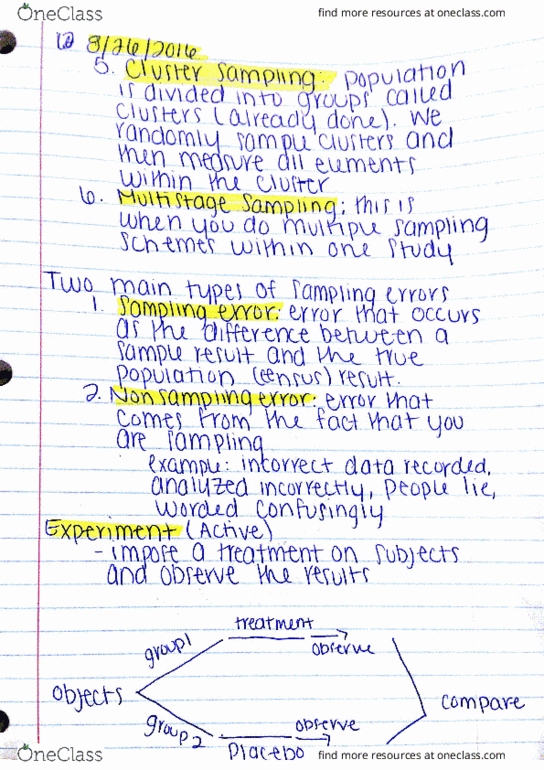 OneClass find more resources at oneclass.com
12 8/26/2016
5. Cluster Sampling: population
is divided into groups called
clusters (already done). We
randomly sample clusters and
then measure all elements
within the cluster
6. Multistage Sampling: this is
when you do multiple sampling
schemes within one study
Two main types of sampling errors
1. Sampling error: error that occurs
as the difference between a
sample result and the true
population (census) result.
2. Nonsampling error: error that
comes from the fact that you
are sampling
example: incorrect data recorded,
analyzed incorrectly, people lie,
worded confusingly
Experiment (Active)
- impose a treatment on subjects
and observe the results
treatment
group 1
observe
objects
compare
group 2
observe
Placebo
OneClass find more resources at oneclass.com